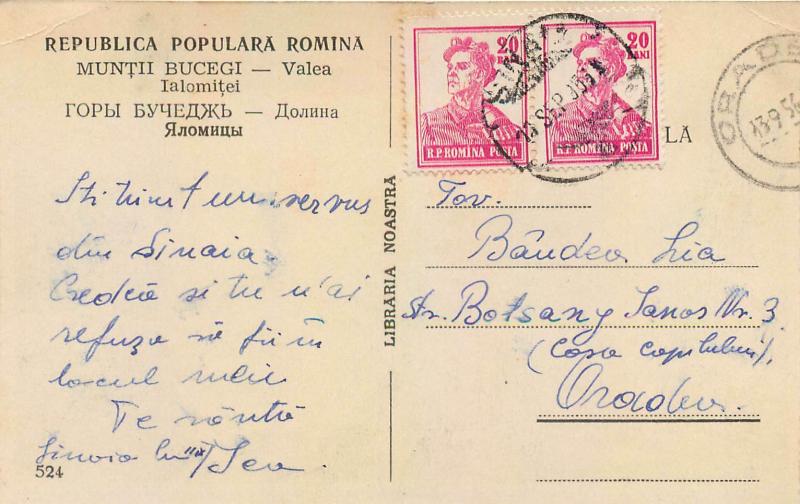 REPUBLICA POPULARĂ ROMINĂ
MUNȚII BUCEGI — Valea
Ialomiței
ГОРЫ БУЧЕДЖЬ — Долина
Яломицы
Iți trimit un servus
din Sinaia.
Cred că și tu n'ai
refuza să fii în
locul meu
Te sărută
Sinaia
524
LIBRĂRIA NOASTRĂ
20
BANI
R.P. ROMINA POSTA
20
BANI
R.P. ROMINA POSTA
SINAIA
13 SEP 195
ORADEA
13.9.56
LĂ
Tov.
Bândea Lia
Str. Bolsany Ianos Nr. 3
(Casa Copilului),
Oradea.